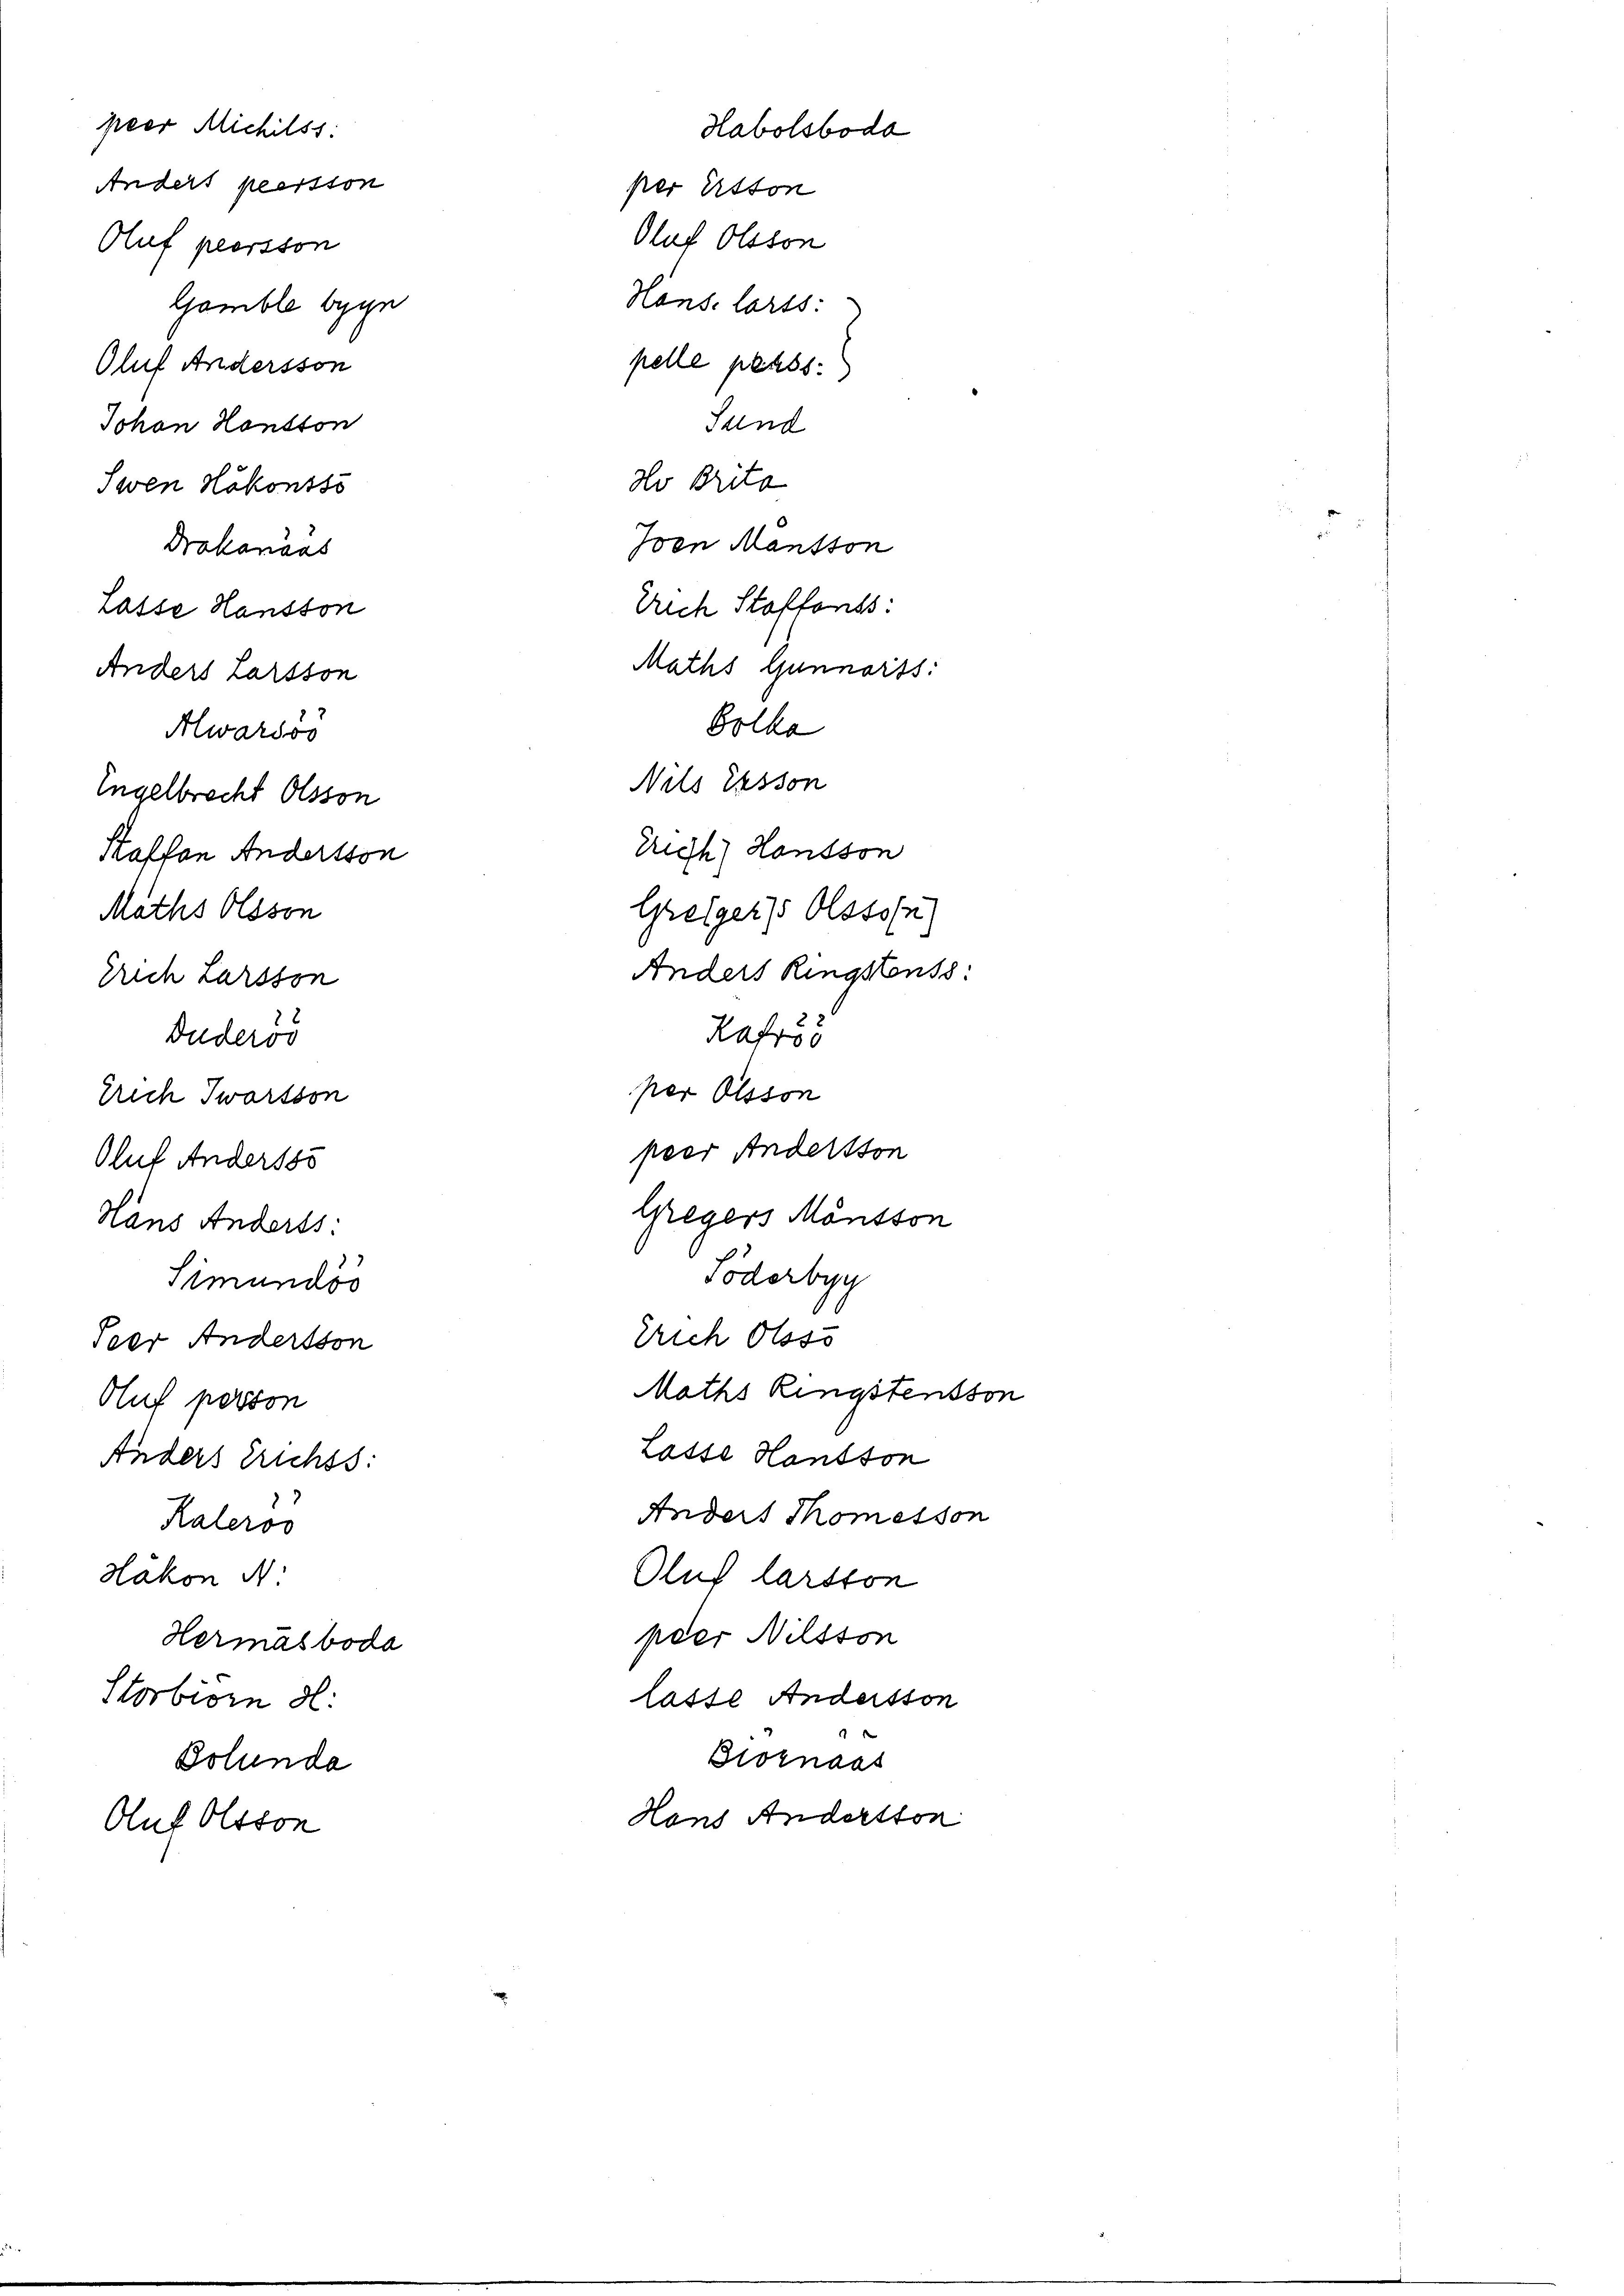 peer Michilss:
Anders peersson
Oluf peersson
Gamble bygn
Oluf Andersson
Johan Hansson
Swen Håkonssō
Drakanääs
Lasse Hansson
Anders Larsson
Alwaröö
Engelbrecht Olsson
Staffan Andersson
Maths Olsson
Erich Larsson
Duderöö
Erich Iwarsson
Oluf Anderssō
Hans Anderss:
Simundöö
Peer Andersson
Oluf person
Anders Erichss:
Kaleröö
Håkon N:
Hermāsboda
Storbiörn H:
Bolunda
Oluf Olsson
Habolsboda
per Ersson
Oluf Olsson
Hans larss: }
pelle perss: }
Sund
Ho Brita
Joen Månsson
Erich Staffanss:
Maths Gunnarss:
Bolka
Nils Ersson
Eric(h) Hansson
Gre(ger)s Olsso(n)
Anders Ringstenss:
Rafröö
per Olsson
peer Andersson
Gregers Månsson
Söderbyy
Erich Olssō
Maths Ringstensson
Lasse Hansson
Anders Thomesson
Oluf larsson
peer Nilsson
lasse Andersson
Biörnääs
Hans Andersson